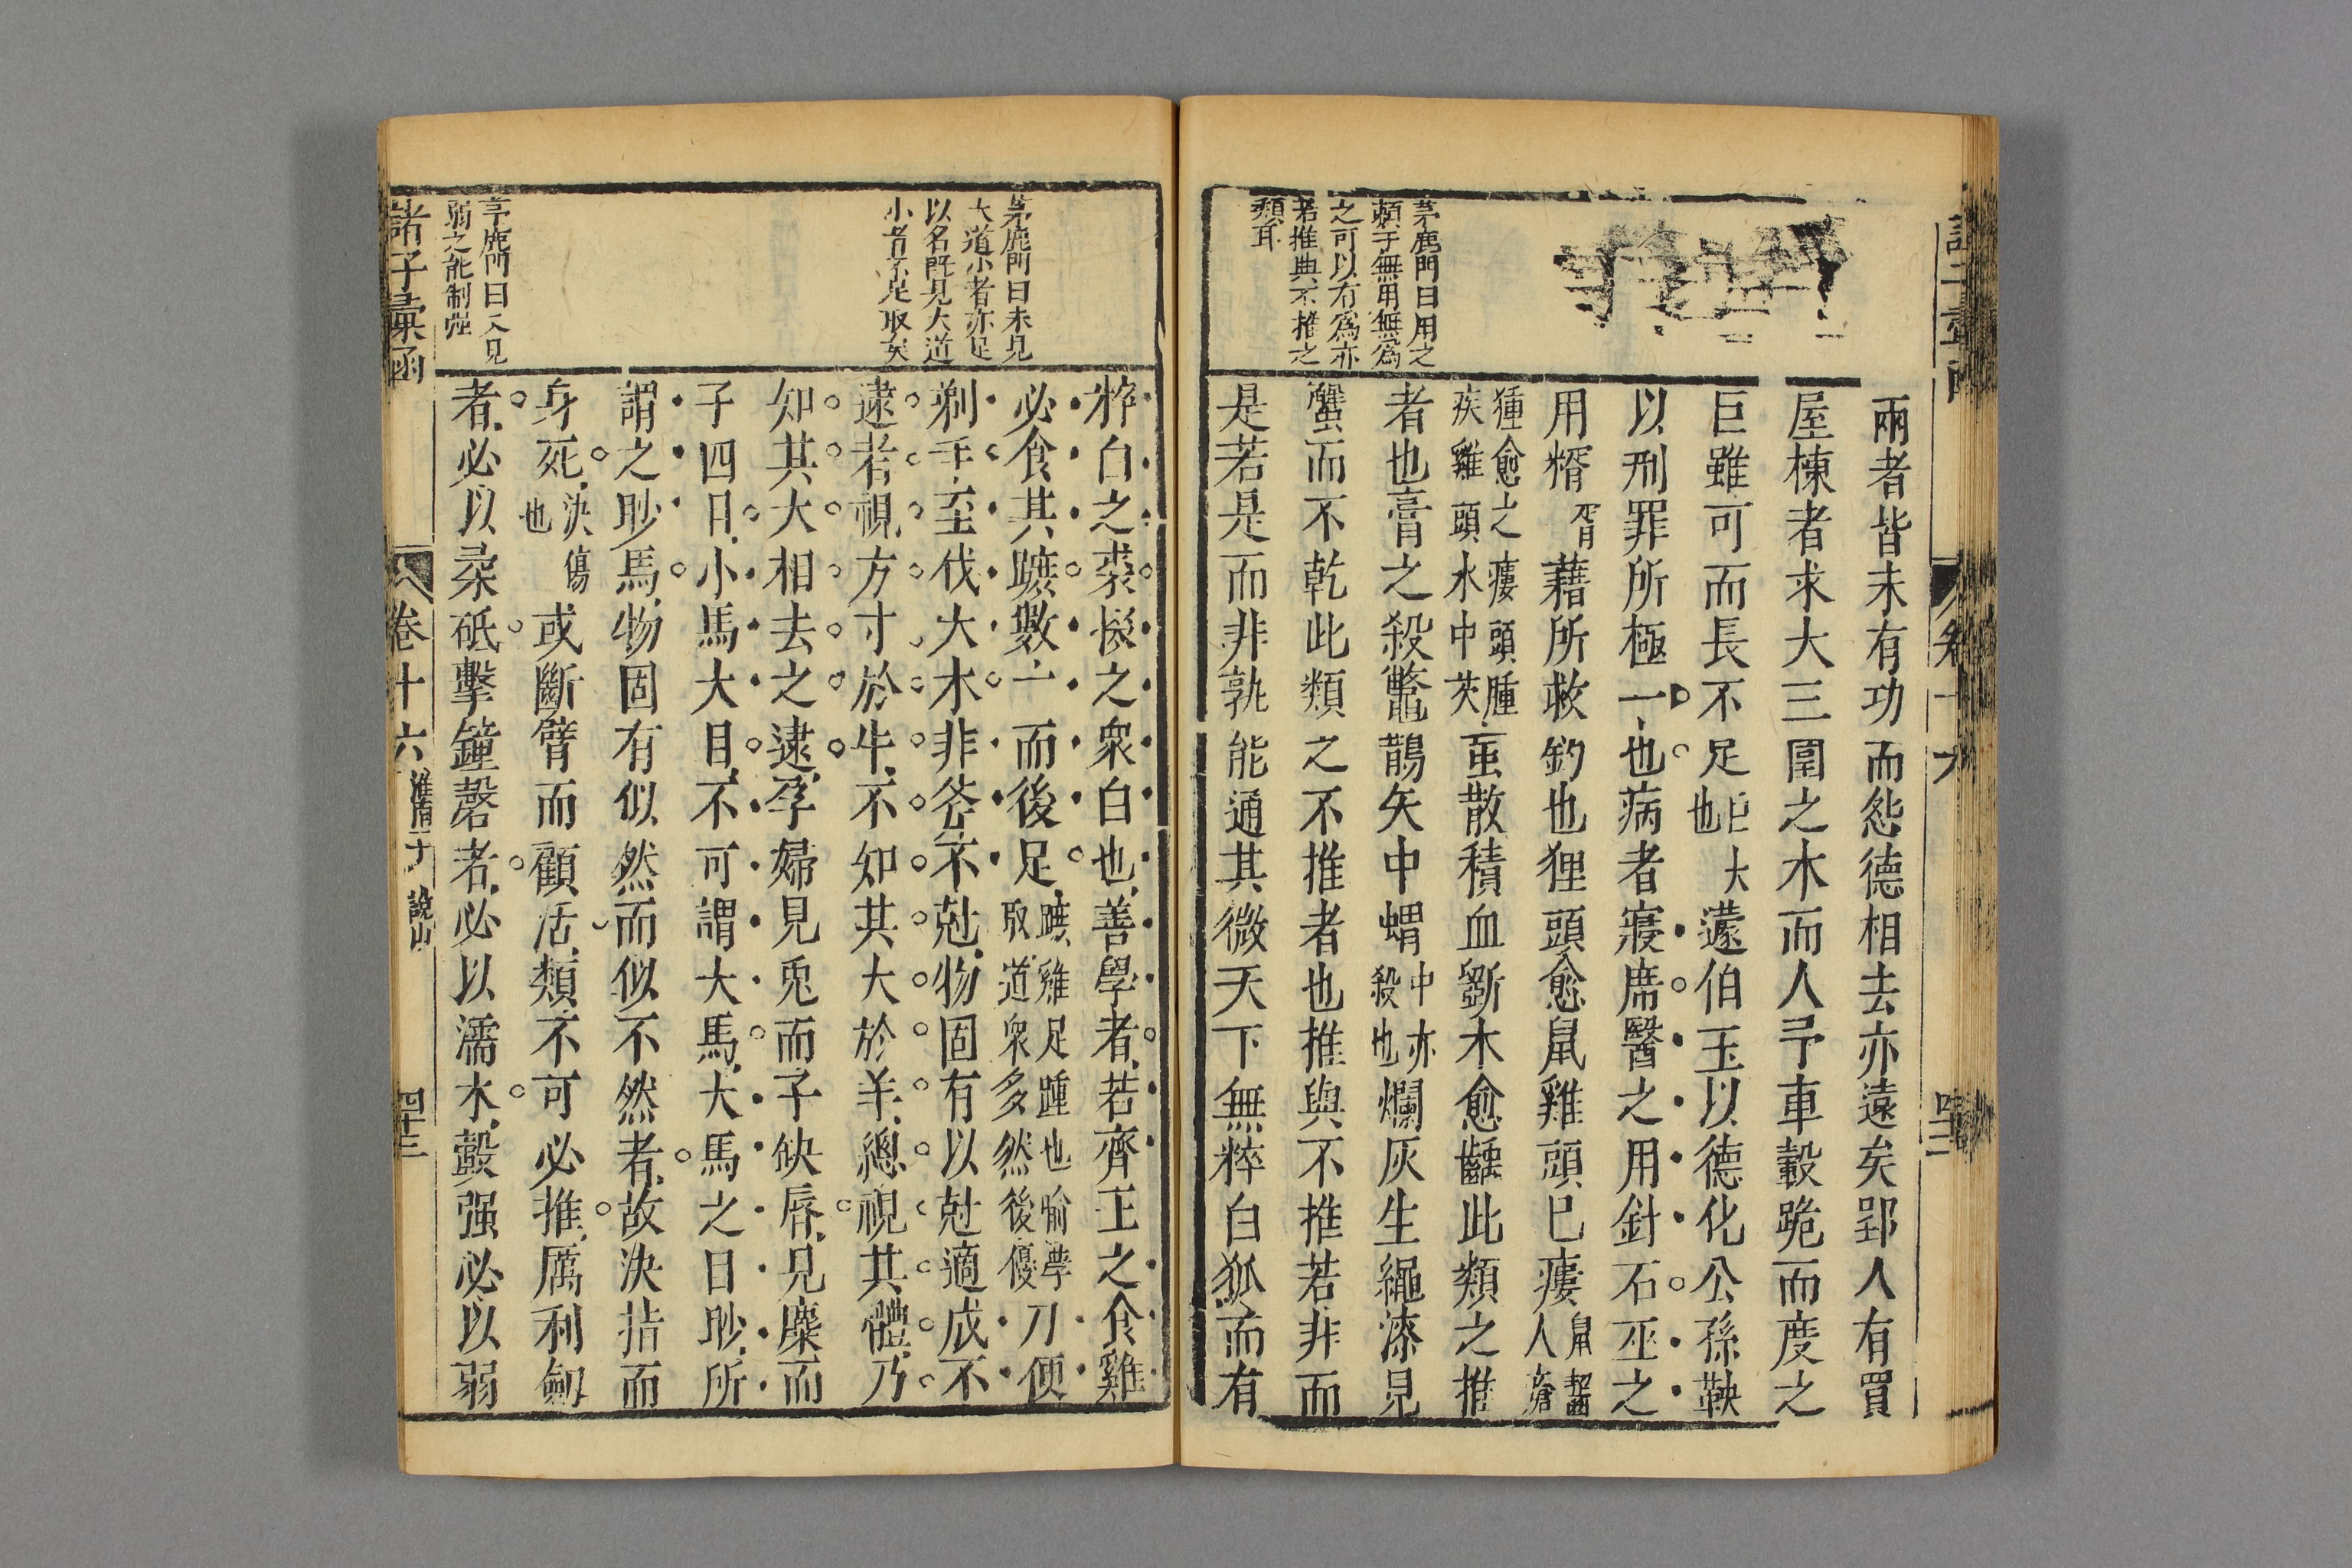 茅鹿門曰用之
頼于無用無為
之可以有為亦
若推與不推之
類耳
兩者皆未有功而怨德相去亦遠矣郢人有買
屋棟者求大三圍之木而人予車轂跪而度之
巨雖可而長不足巨大也蘧伯玉以德化公孫鞅
以刑罪所極一也病者寢席醫之用針石巫之
用糈藉所救鈞也狸頭愈鼠雞頭已瘻鼠齧人瘡
狸愈之瘻頭腫疾雞頭水中芡䖟散積血斲木愈齲此類之推
者也膏之殺鼈鵲矢中蝟中亦殺也爛灰生繩漆見
蟹而不乾此類之不推者也推與不推若非而
是若是而非孰能通其微天下無粹白狐而有
茅鹿門曰未見
大道小者亦足
以名既見大道
小者不足取矣
粹白之裘掇之衆白也善學者若齊王之食雞
必食其蹠數十而後足蹠雞足踵也喻學取道衆多然後優刀便
剃毛至伐大木非斧不尅物固有以尅適成不
逮者視方寸於牛不知其大於羊總視其體乃
知其大相去之逮孕婦見兎而子缺唇見麋而
子四目小馬大目不可謂大馬大馬之目眇所
謂之眇馬物固有似然而似不然者故決指而
身死決傷也或斷臂而顧活類不可必推厲利劒
者必以柔砥擊鐘磬者必以濡木轂强必以弱
茅鹿門曰又見
弱之能制强
諸子彙函
卷十六
淮南子
說山
四十三